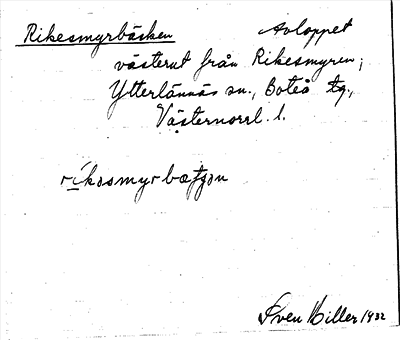 Rikesmyrbäcken Avloppet
västerut från Rikesmyren;
Ytterlännäs sn., Boteå tg.,
Västernorrl. l.
ríkəsmyrbæҫҫən
Sven Hiller 1932